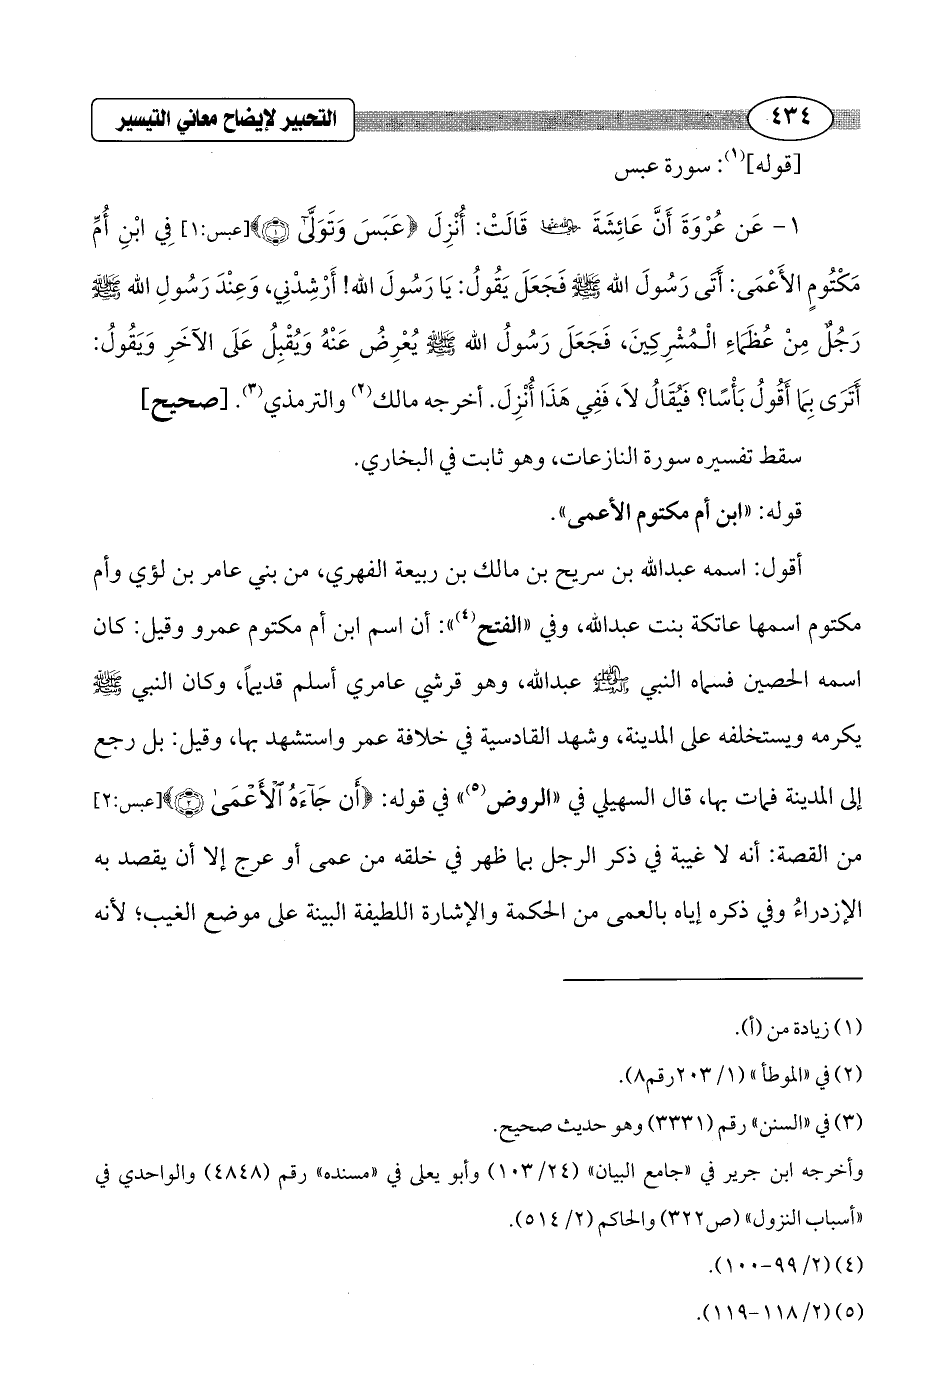 ٤٣٤
التحبير لإيضاح معاني التيسير
[قوله](١): سورة عبس
١- عَن عُرْوَةَ أَنَّ عَائِشَةَ رضي الله عنها قَالَتْ: أُنْزِلَ ﴿عَبَسَ وَتَوَلَّىٰٓ ١﴾[عبس:١] فِي ابْنِ أُمِّ
مَكْتُومٍ الأَعْمَى: أَتَى رَسُولَ الله ﷺ فَجَعَلَ يَقُولُ: يَا رَسُولَ الله! أَرْشِدْنِي، وَعِنْدَ رَسُولِ الله ﷺ
رَجُلٌ مِنْ عُظَمَاءِ الْـمُشْرِكِينَ، فَجَعَلَ رَسُولُ الله ﷺ يُعْرِضُ عَنْهُ وَيُقْبِلُ عَلَى الآخَرِ وَيَقُولُ:
أَتَرَى بِمَا أَقُولُ بَأْسًا؟ فَيُقَالُ لاَ، فَفِي هَذَا أُنْزِلَ. أخرجه مالك(٢) والترمذي(٣). [صحيح]
سقط تفسيره سورة النازعات، وهو ثابت في البخاري.
قوله: «ابن أم مكتوم الأعمى».
أقول: اسمه عبدالله بن سريح بن مالك بن ربيعة الفهري، من بني عامر بن لؤي وأم
مكتوم اسمها عاتكة بنت عبدالله، وفي «الفتح(٤)»: أن اسم ابن أم مكتوم عمرو وقيل: كان
اسمه الحصين فسماه النبي صلى الله عليه وآله وسلم عبدالله، وهو قرشي عامري أسلم قديماً، وكان النبي ﷺ
يكرمه ويستخلفه على المدينة، وشهد القادسية في خلافة عمر واستشهد بها، وقيل: بل رجع
إلى المدينة فمات بها، قال السهيلي في «الروض(٥)» في قوله: ﴿أَن جَآءَهُ ٱلْأَعْمَىٰ ٢﴾[عبس:٢]
من القصة: أنه لا غيبة في ذكر الرجل بما ظهر في خلقه من عمى أو عرج إلا أن يقصد به
الإزدراءُ وفي ذكره إياه بالعمى من الحكمة والإشارة اللطيفة البينة على موضع الغيب؛ لأنه
(١) زيادة من (أ).
(٢) في «الموطأ» (١/ ٢٠٣رقم٨).
(٣) في «السنن» رقم (٣٣٣١) وهو حديث صحيح.
وأخرجه ابن جرير في «جامع البيان» (٢٤/ ١٠٣) وأبو يعلى في «مسنده» رقم (٤٨٤٨) والواحدي في
«أسباب النزول» (ص٣٢٢) والحاكم (٢/ ٥١٤).
(٤) (٢/ ٩٩-١٠٠).
(٥) (٢/ ١١٨-١١٩).